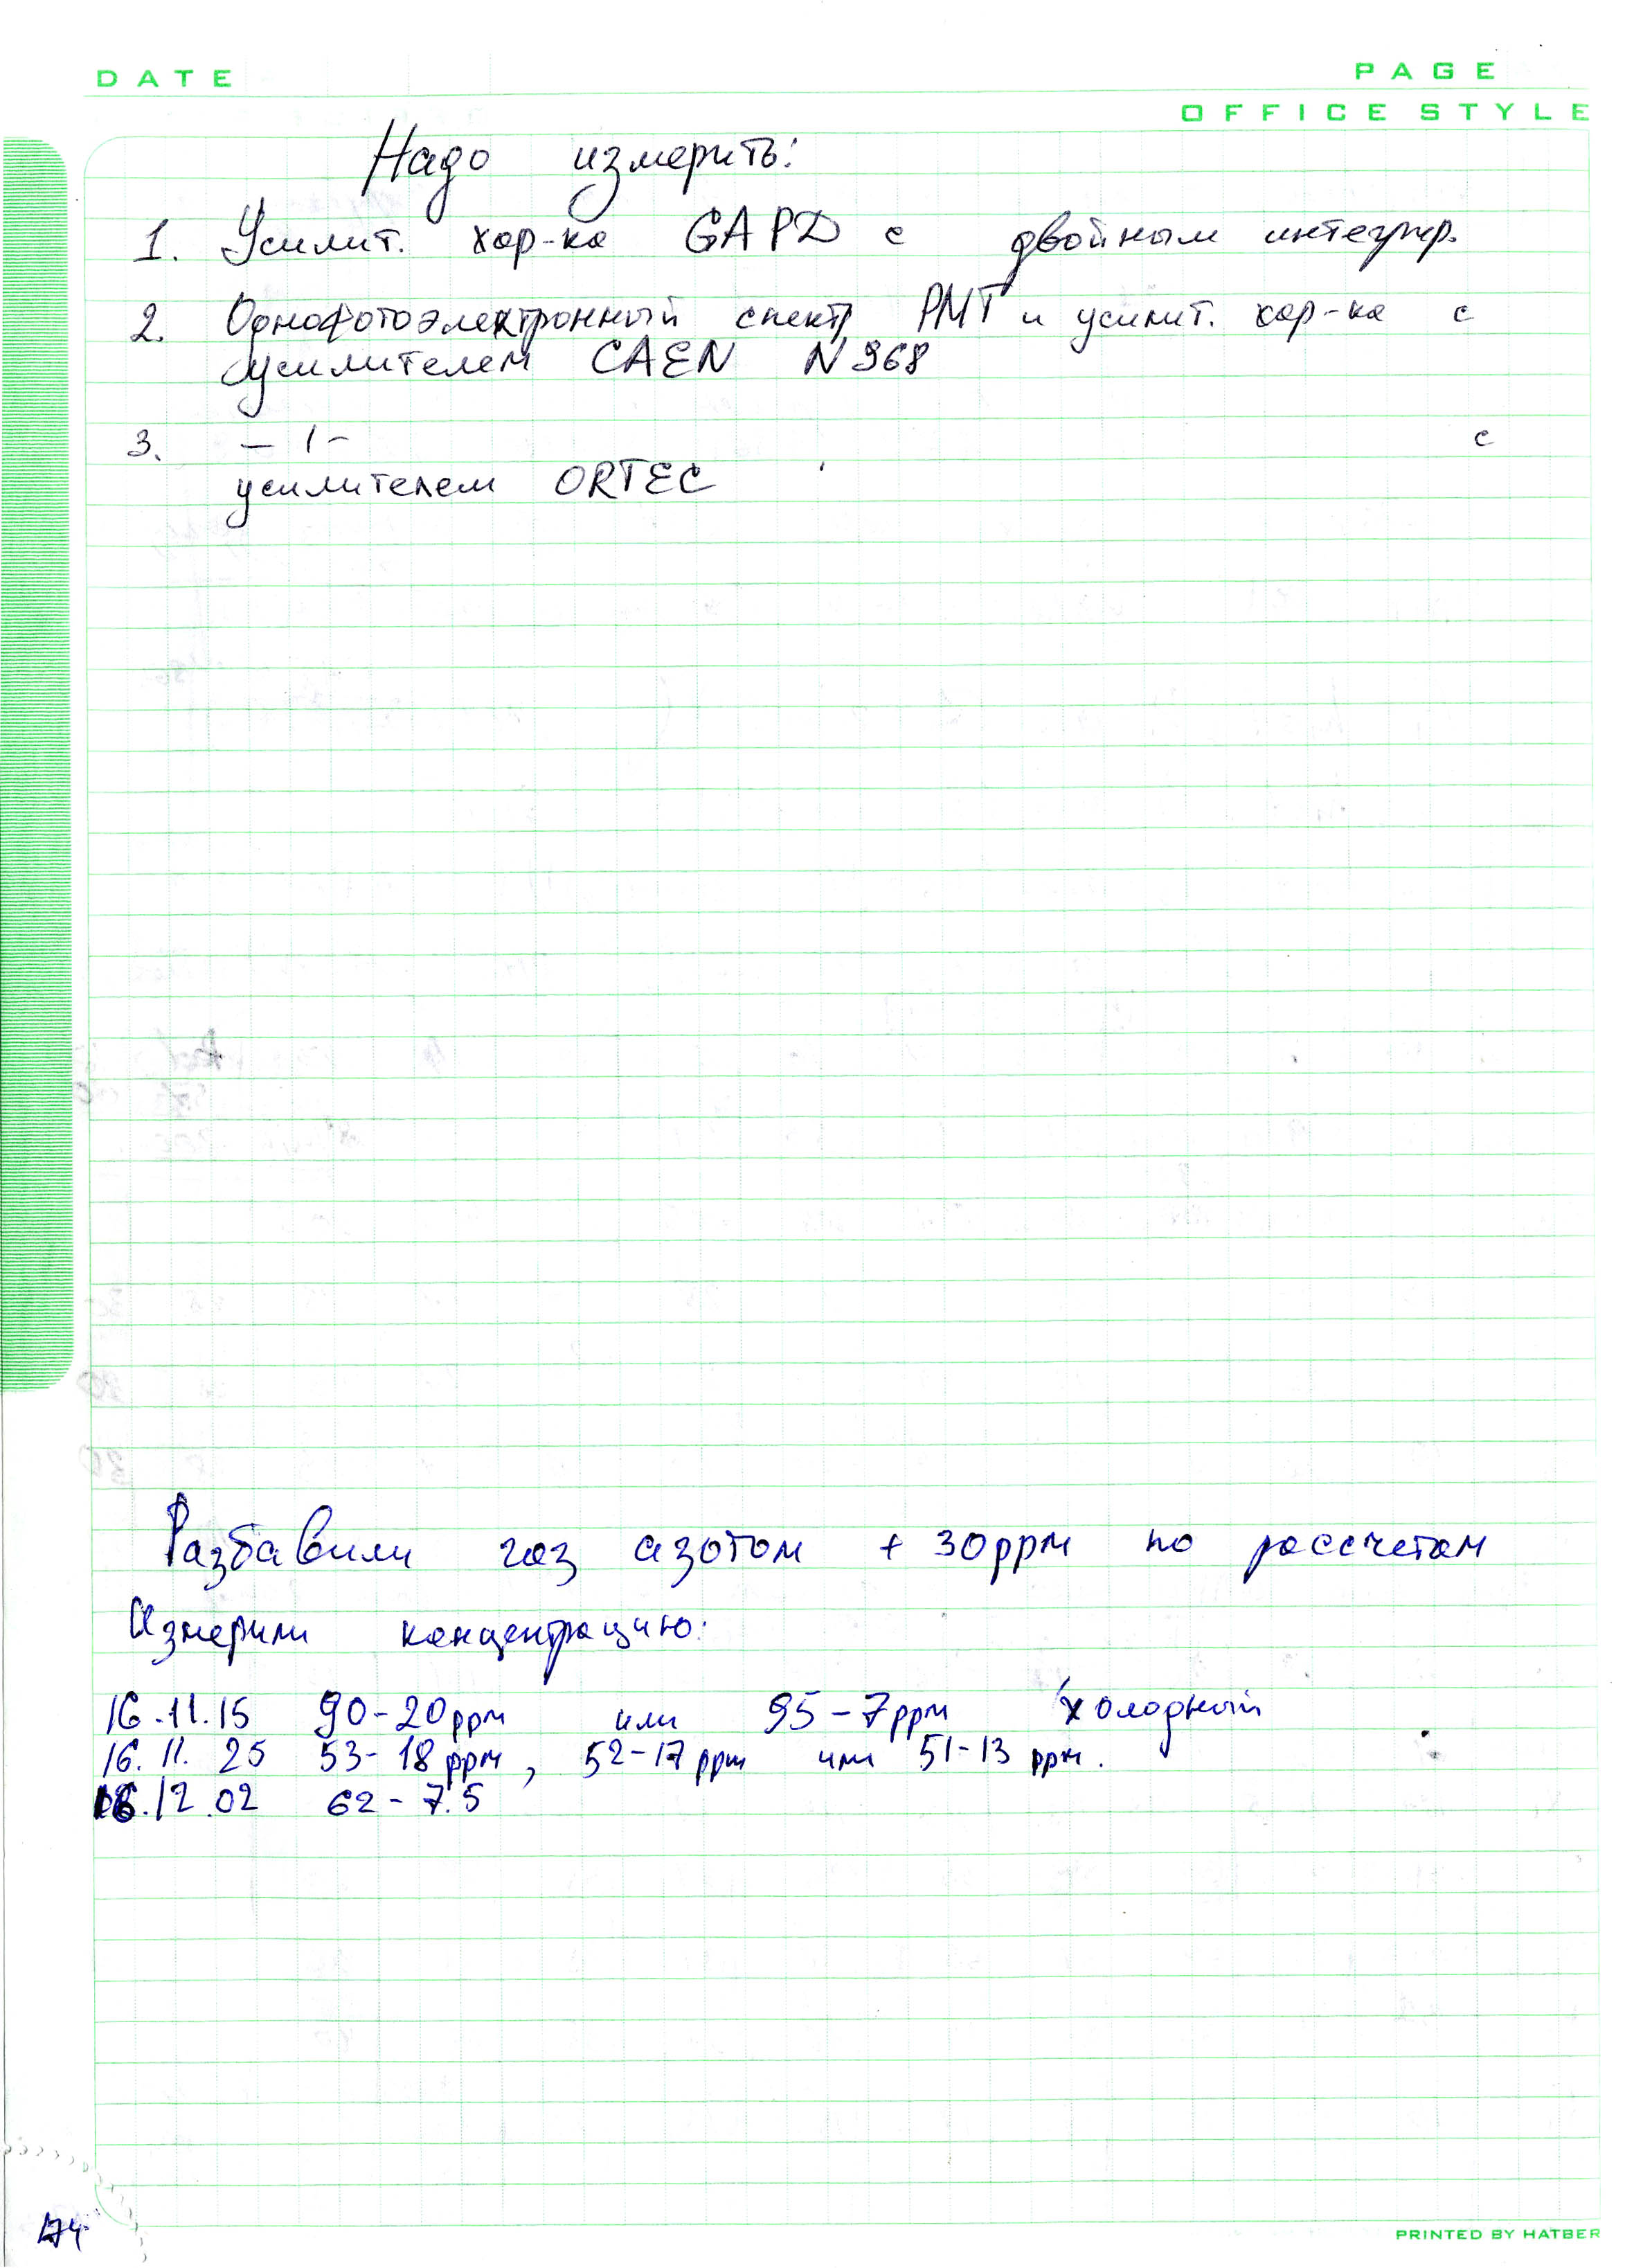 DATE
PAGE
OFFICE STYLE
Надо измерить:
1. Усилит. хар-ка GAPD с двойным интегрир.
2. Однофотоэлектронный спектр PMT и усилит. хар-ка с
усилителем CAEN N968
3. — 1 — с
усилителем ORTEC
Разбавили газ азотом + 30ppm по рассчетам
Измерили концентрацию:
16.11.15 90-20ppm или 95-7ppm холодный
16.11.25 53-18ppm, 52-17ppm или 51-13 ppm.
16.12.02 62-7.5
174
PRINTED BY HATBER